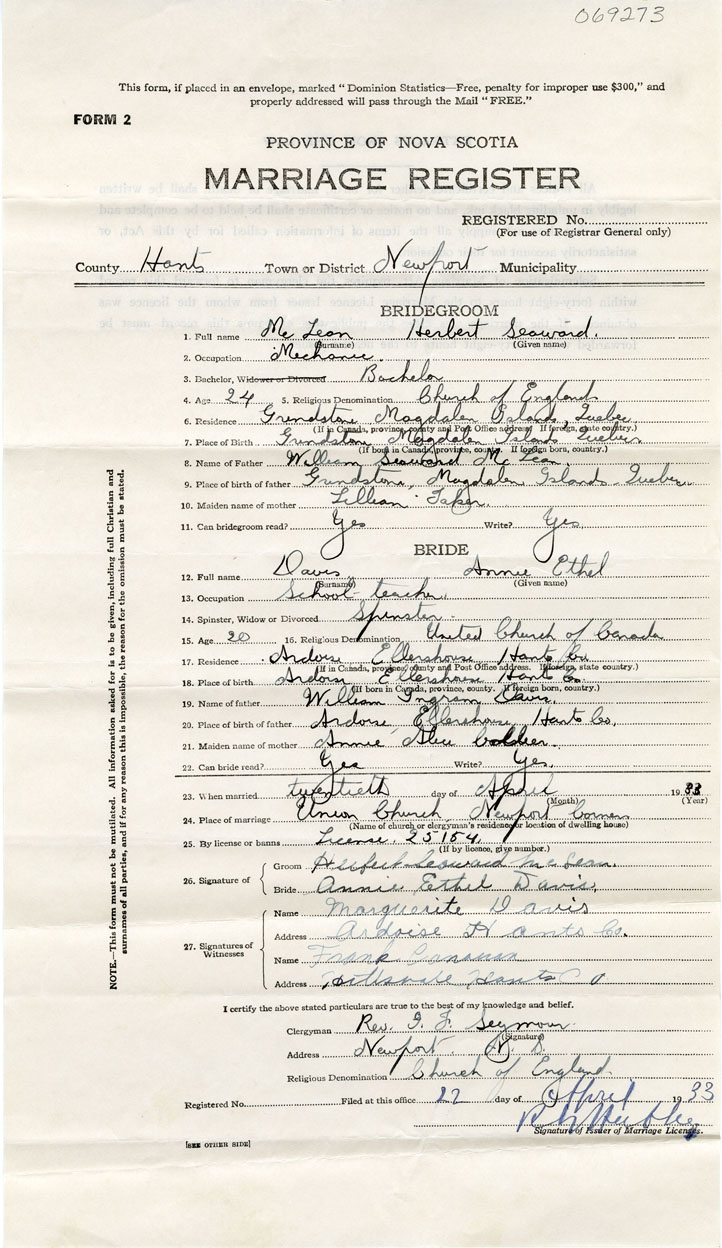 069273
This form, if placed in an envelope, marked "Dominion Statistics—Free, penalty for improper use $300," and
properly addressed will pass through the Mail "FREE."
FORM 2
PROVINCE OF NOVA SCOTIA
MARRIAGE REGISTER
REGISTERED No.
(For use of Registrar General only)
County Hants Town or District Newport Municipality
BRIDEGROOM
1. Full name McLean Herbert Seaward.
(Surname) (Given name)
2. Occupation Mechanic.
3. Bachelor, Widower or Divorced Bachelor
4. Age 24 5. Religious Denomination Church of England
6. Residence Grindstone Magdalen Islands, Quebec
(If in Canada, province, county and Post Office address. If foreign, state country.)
7. Place of Birth Grindstone Magdalen Islands Quebec
(If born in Canada, province, county. If foreign born, country.)
8. Name of Father William Seaward McLean
9. Place of birth of father Grindstone, Magdalen Islands - Quebec
10. Maiden name of mother Lillian
11. Can bridegroom read? Yes Write? Yes
BRIDE
12. Full name Davis Annie Ethel
(Surname) (Given name)
13. Occupation School-teacher
14. Spinster, Widow or Divorced Spinster
15. Age 20 16. Religious Denomination United Church of Canada
17. Residence Ardoise Ellershouse Hants Co.
(If in Canada, province, county and Post Office address. If foreign, state country.)
18. Place of birth Ardoise Ellershouse Hants Co.
(If born in Canada, province, county. If foreign born, country.)
19. Name of father William Ingram Davis
20. Place of birth of father Ardoise, Ellershouse, Hants Co.
21. Maiden name of mother Annie Alice
22. Can bride read? Yes Write? Yes.
23. When married twentieth day of April 1933
(Month) (Year)
24. Place of marriage Union Church, Newport Corner
(Name of church or clergyman's residence or location of dwelling house)
25. By license or banns License, 25154.
(If by licence, give number.)
26. Signature of Groom Herbert Seaward McLean.
Bride Annie Ethel Davis.
27. Signatures of Witnesses
Name Marguerite Davis
Address Ardoise Hants Co.
Name Frank
Address Hants
NOTE.—This form must not be mutilated. All information asked for is to be given, including full Christian and
surnames of all parties, and if for any reason this is impossible, the reason for the omission must be stated.
I certify the above stated particulars are true to the best of my knowledge and belief.
Clergyman Rev. I. F. Seymour.
(Signature)
Address Newport. N. S.
Religious Denomination Church of England.
Registered No. Filed at this office 22 day of April 1933
Signature of Issuer of Marriage Licenses.
[SEE OTHER SIDE]